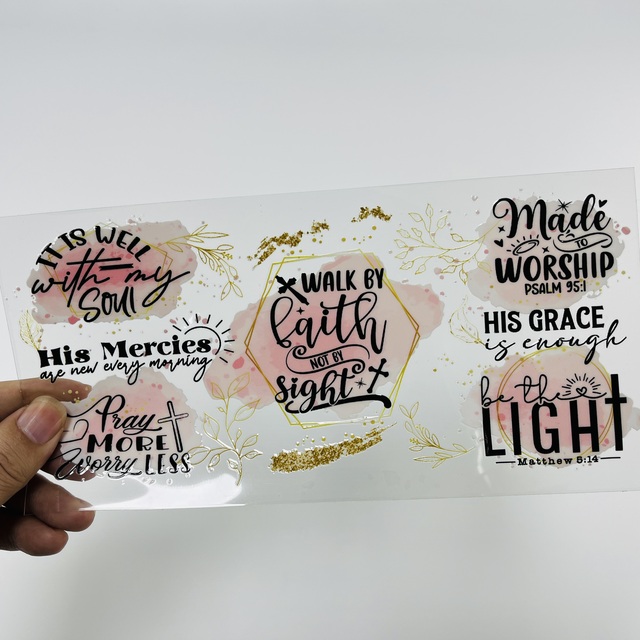 IT IS WELL
with my
SOUL
His Mercies
are new every morning
Pray
MORE
Worry LESS
WALK BY
faith
NOT BY
sight
Made
TO
WORSHIP
PSALM 95:1
HIS GRACE
is enough
be the
LIGHT
Matthew 5:14